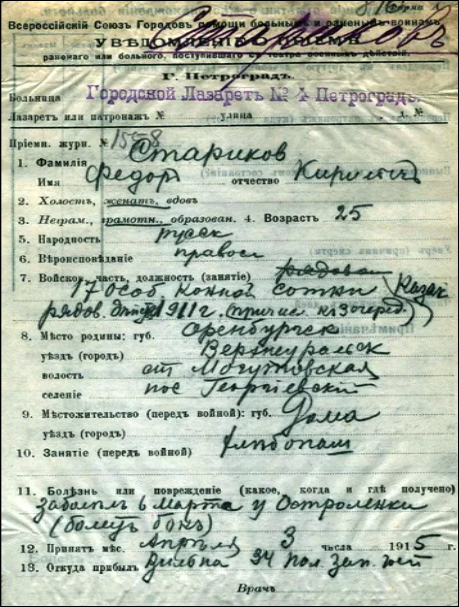 Всероссійскій Союзъ Городовъ помощи больнымъ и раненымъ воинамъ
УВѢДОМЛЕНІЕ О ПРІЕМѢ
Стариковъ
раненаго или больного, поступившаго съ театра военныхъ дѣйствій.
Г. Петроградъ.
Больница Городской Лазаретъ № 4 Петроградъ.
Лазаретъ или патронажъ № улица д. №
Пріемн. журн. № 1558
1. Фамилія Стариков
Имя Федор отчество Кирилович
2. Холостъ, женатъ, вдовъ
3. Неграм., грамотн., образован. 4. Возрастъ 25
5. Народность русск
6. Вѣроисповѣданіе правосл
7. Войсков. часть, должность (занятіе) рядовой
17 Особ Конной сотни Казак
рядов. 1911 г. (причис к 3 очеред.)
8. Мѣсто родины: губ. Оренбургск
уѣздъ (городъ) Верхнеуральск
волость ст Могутовская
селеніе пос Георгіевскій
9. Мѣстожительство (передъ войной): губ. Дома
уѣздъ (городъ)
10. Занятіе (передъ войной) хлѣбопаш
11. Болѣзнь или поврежденіе (какое, когда и гдѣ получено)
Заболѣл 6 Марта у Остроленки
(болит бок)
12. Принятъ мѣс. Апрѣля 3 числа 1915 г.
13. Откуда прибылъ Вильна 34 пол. зап. гос
Врачъ